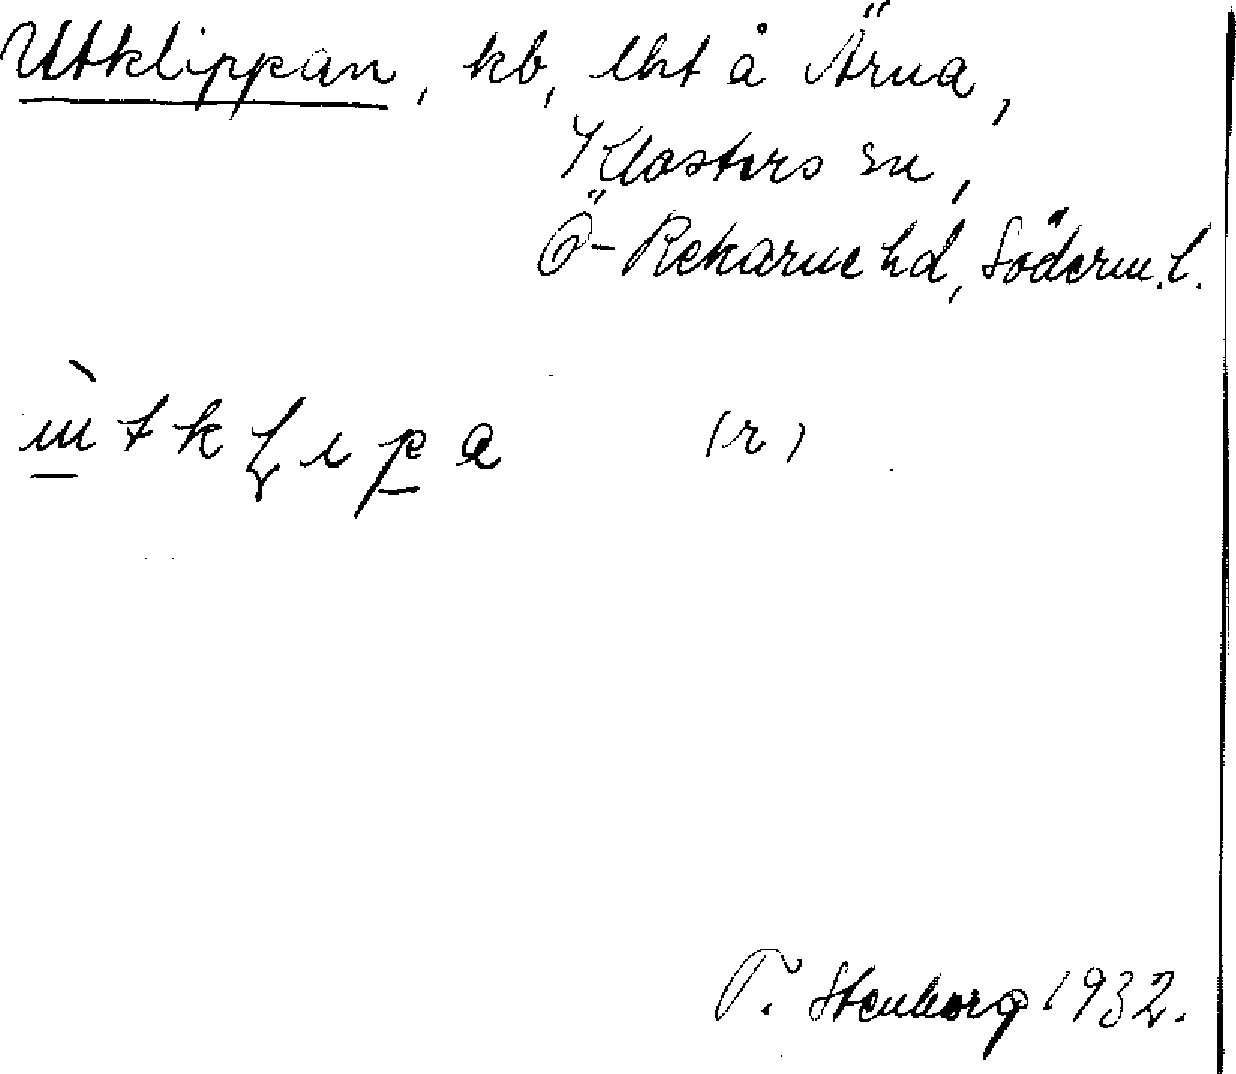 Utklippan, kb, lht å Ärna,
Klosters sn,
Ö-Rekarne hd, Söderm. l.
ùtklipa (r)
T. Stenborg 1932.